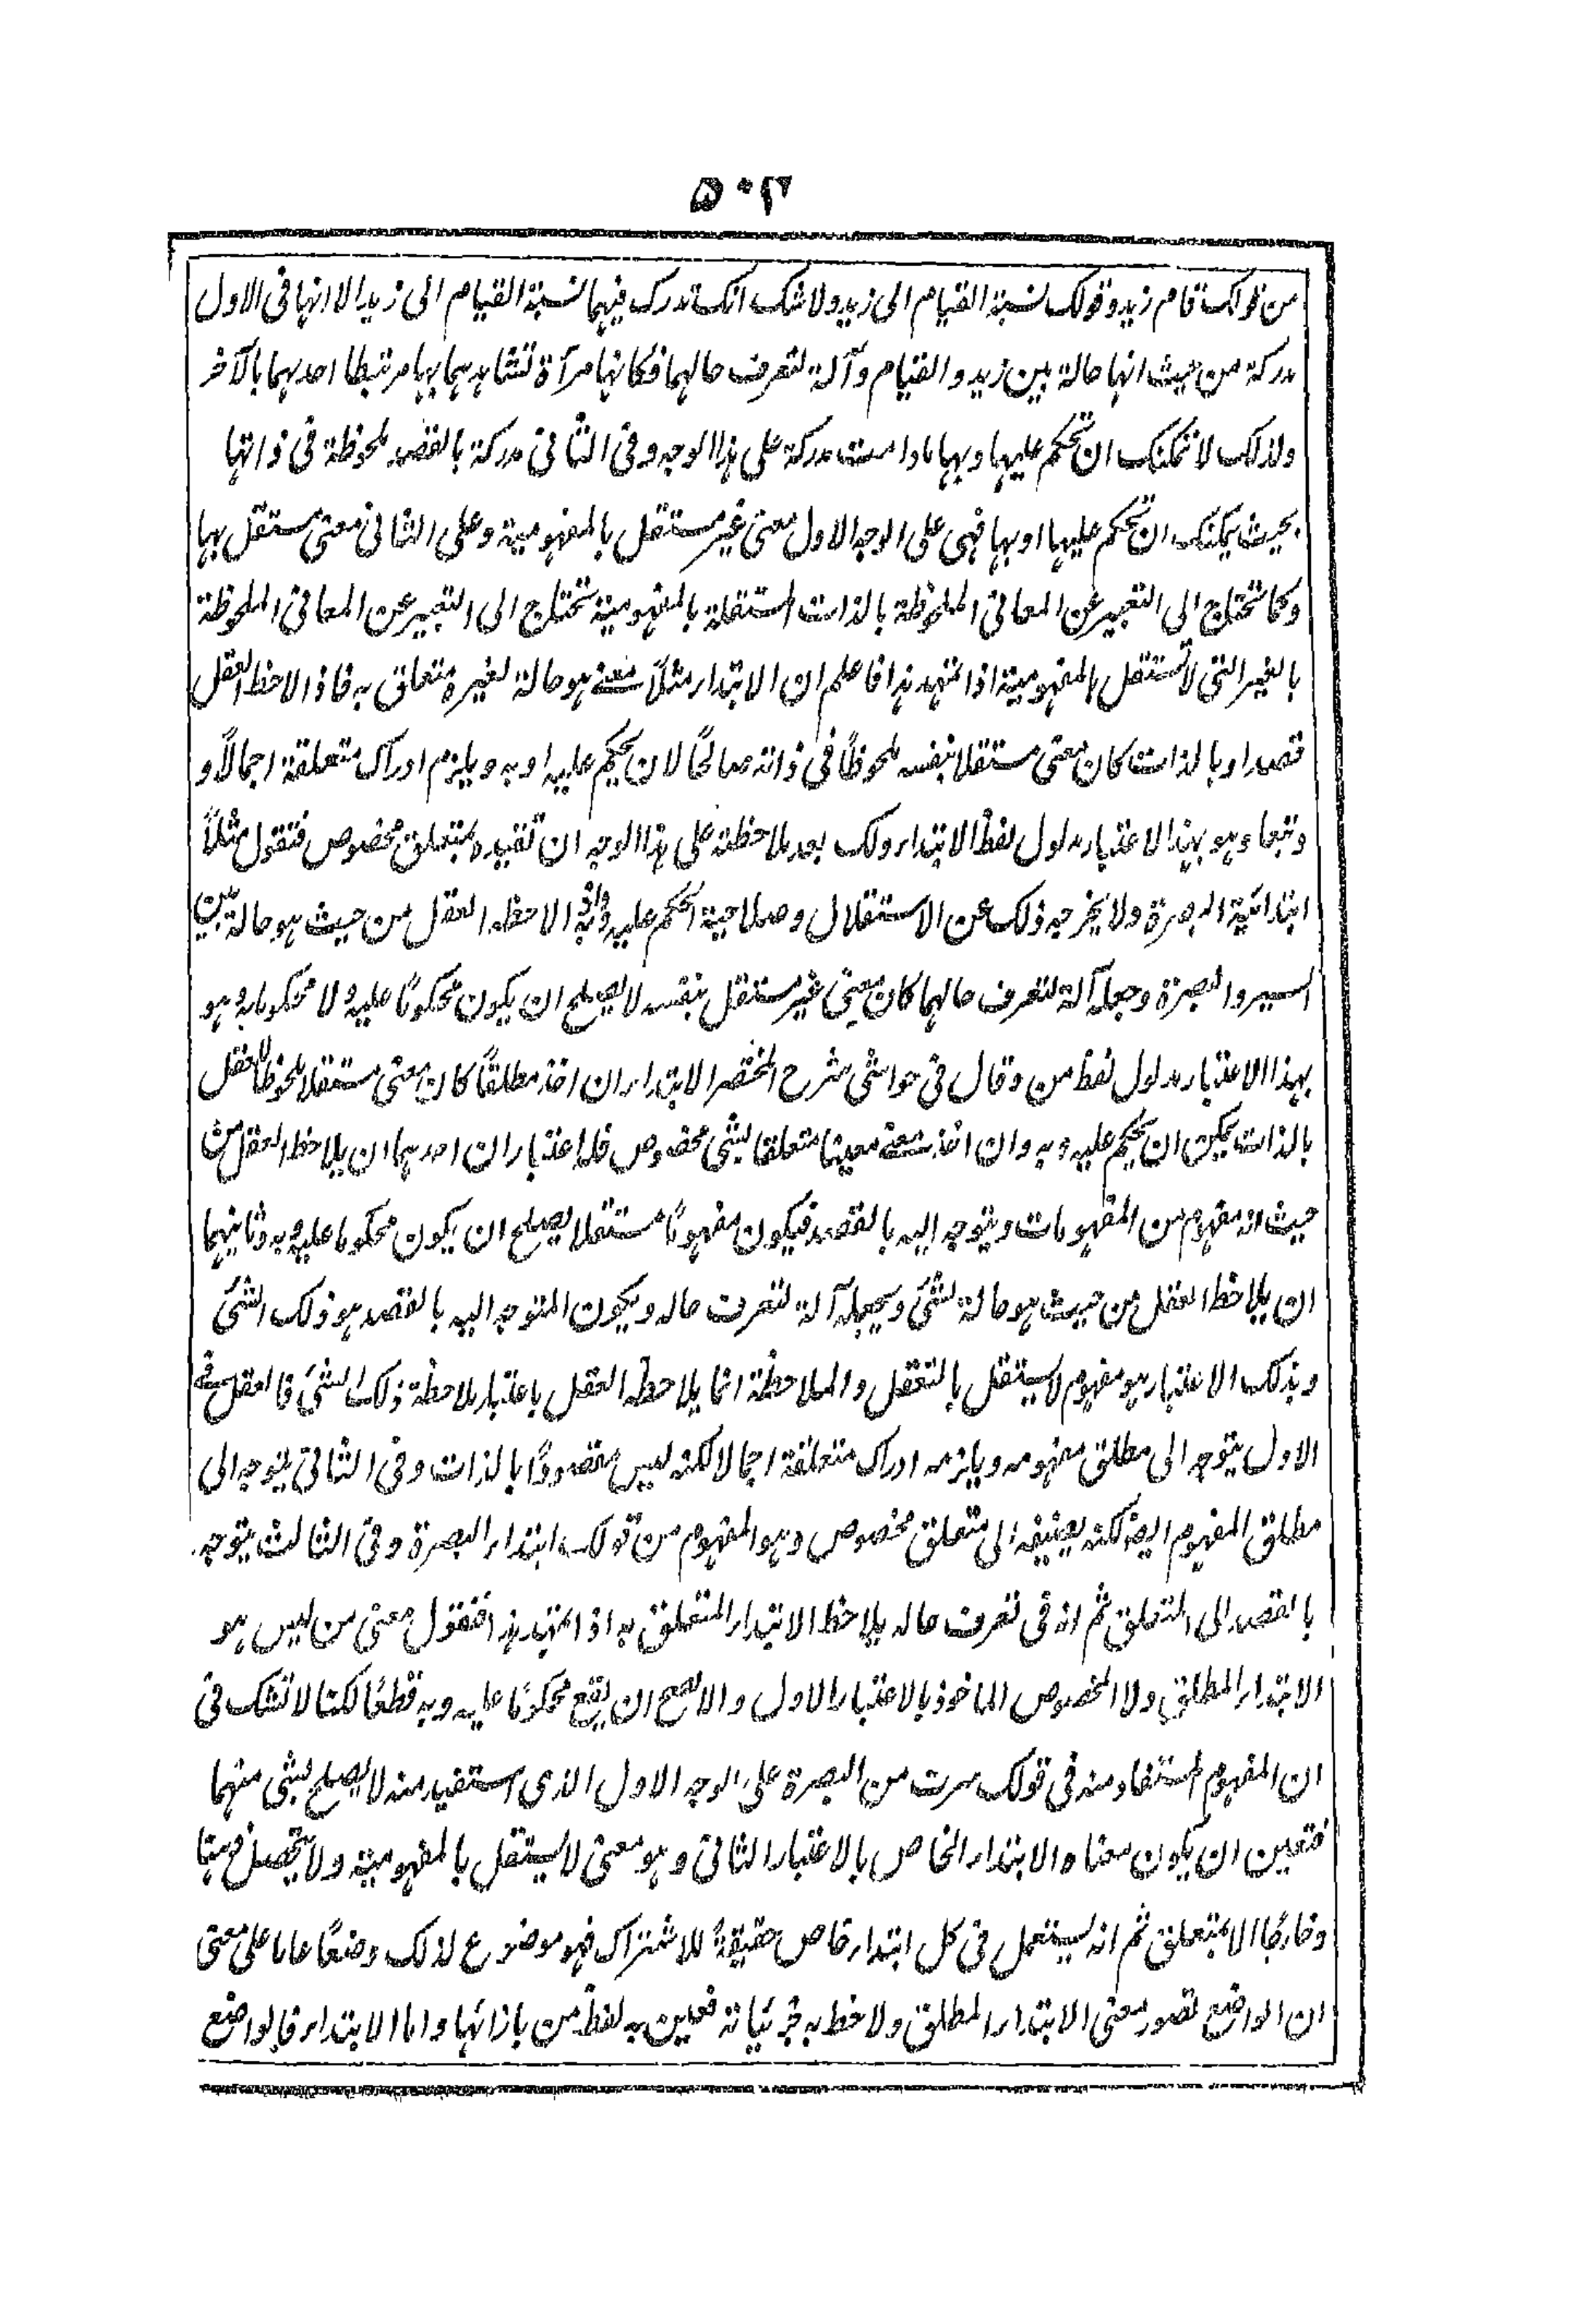 ۵۰۲
من قولك قام زيد وقولك نسبة القيام الى زيد ولا شك انك تدرك فيهما نسبة القيام الى زيد الا انها فى الاول
مدركة من حيث انها حالة بين زيد و القيام وآلة لتعرف حالهما فكانها مرآة تشاهدهما بها مرتبطا احدهما بالآخر
ولذلك لا تمكنك ان تحكم عليها و بها ما دامت مدركة على هذا الوجه وفى الثانى مدركة بالقصد ملحوظة فى ذواتها
بحيث يمكنك ان تحكم عليها او بها فهى على الوجه الاول معنى غير مستقل بالمفهومية وعلى الثانى معنى مستقل بها
وكما تحتاج الى التعبير عن المعانى الملحوظة بالذات المستقلة بالمفهومية تحتاج الى التعبير عن المعانى الملحوظة
بالغير التى لا تستقل بالمفهومية اذا تمهد هذا فاعلم ان الابتداء مثلاً معنى هو حالة لغيره متعلق به فاذا لاحظ العقل
قصدا و بالذات كان معنى مستقلا بنفسه ملحوظاً فى ذاته صالحًا لان يحكم عليه او به و يلزم ادراك متعلقة اجمالاً و
وتبعا وهو بهذا الاعتبار مدلول لفظ الابتداء ولك بعد ملاحظته على هذا الوجه ان تقيده بمتعلق مخصوص فتقول مثلاً
ابتدائية البصرة ولا يخرجه ذلك عن الاستقلال وصلاحية الحكم عليه وبه واذا لاحظه العقل من حيث هو حالة بين
السير والبصرة وجعله آلة لتعرف حالهما كان معنىً غير مستقل بنفسه لا يصلح ان يكون محكومًا عليه ولا محكوما به وهو
بهذا الاعتبار مدلول لفظ من وقال فى حواشى شرح المختصر الابتداء ان اخذ مطلقاً كان معنى مستقلا ملحوظاً للعقل
بالذات يمكن ان يحكم عليه و به وان اخذ معنى معينا متعلقا بشئ مخصوص فله اعتباران احدهما ان يلاحظ العقل من
حيث انه مفهوم من المفهومات و يتوجه اليه بالقصد فيكون مفهومًا مستقلا يصلح ان يكون محكوما عليه وبه وثانيهما
ان يلاحظ العقل من حيث هو حالة لشئ ويجعله آلة لتعرف حاله ويكون المتوجه اليه بالقصد هو ذلك الشئ
وبذلك الاعتبار هو مفهوم لا يستقل بالتعقل والملاحظة انما يلاحظه العقل باعتبار ملاحظة ذلك الشئ فالعقل فى
الاول يتوجه الى مطلق مفهومه ويلزمه ادراك متعلقة اجمالا لكنه ليس مقصودًا بالذات وفى الثانى يتوجه الى
مطلق المفهوم ايضا لكنه يضيفه الى متعلق مخصوص وهو المفهوم من قولك ابتداء البصرة وفى الثالث يتوجه
بالقصد الى المتعلق ثم انه فى تعرف حاله يلاحظ الابتداء المتعلق به اذا تمهد هذا فنقول معنى من ليس هو
الابتداء المطلق ولا المخصوص الماخوذ بالاعتبار الاول والا لصح ان يقع محكومًا عليه وبه قطعًا لكنا لا نشك فى
ان المفهوم المستفاد منه فى قولك سرت من البصرة على الوجه الاول الذى استفيد منه لا يصلح لشئ منهما
فتعين ان يكون معناه الابتداء الخاص بالاعتبار الثانى وهو معنى لا يستقل بالمفهومية ولا يتحصل ذهنا
وخارجًا الا بمتعلق ثم انه يستعمل فى كل ابتداء خاص حقيقةً للاشتراك فهو موضوع لذلك وضعًا عاما على معنى
ان الواضع تصور معنى الابتداء المطلق ولاحظ به جزئياته فعين به لفظ من بازائها واما الابتداء فالواضع